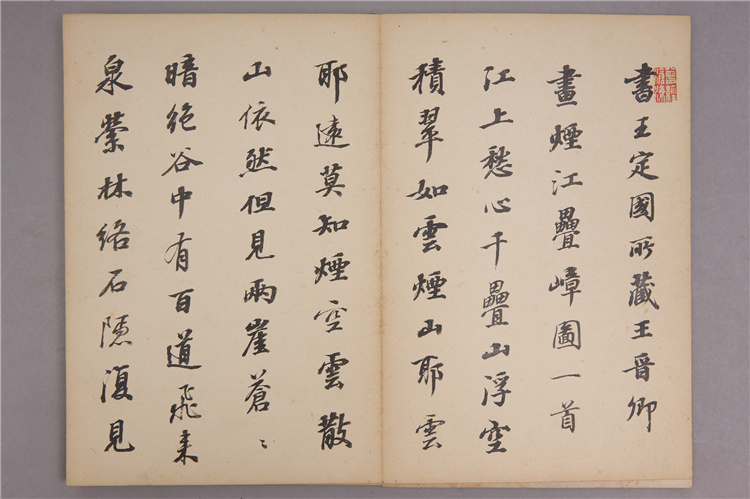 書王定國所藏王晉卿
畫煙江疊嶂圖一首
江上愁心千疊山浮空
積翠如雲煙山耶雲
耶遠莫知煙空雲散
山依然但見兩崖蒼〻
暗絕谷中有百道飛来
泉縈林絡石隱復見